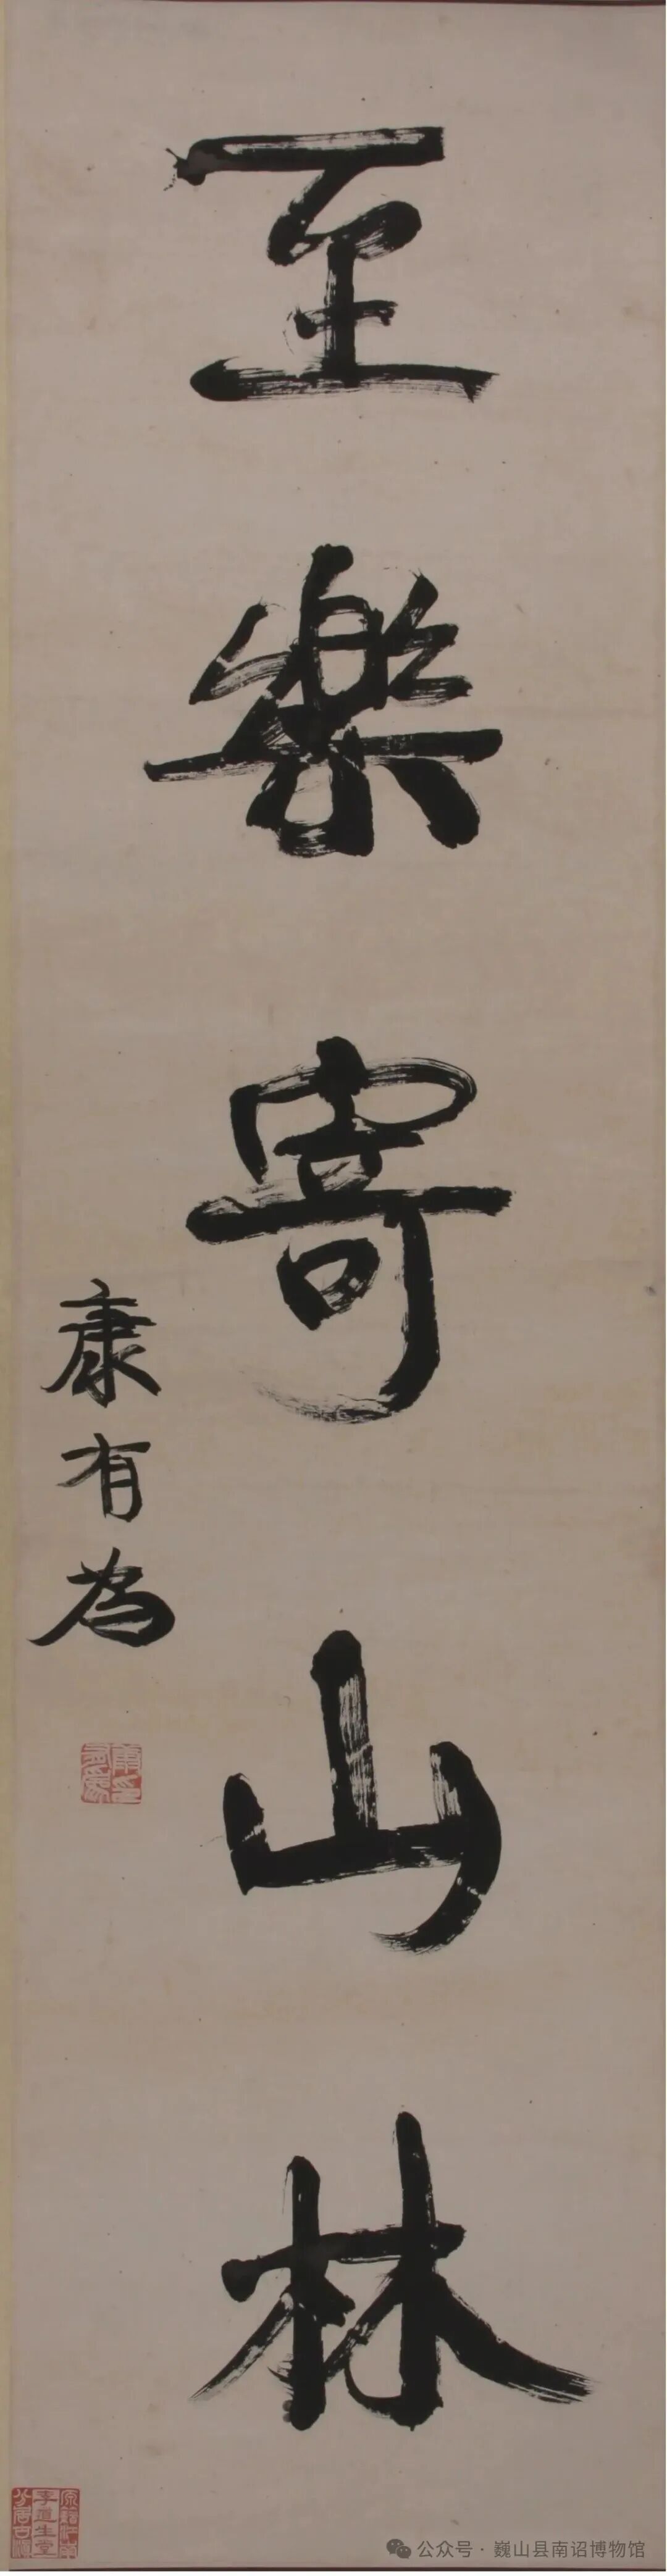 至樂寄山林
康有為
公众号·巍山县南诏博物馆